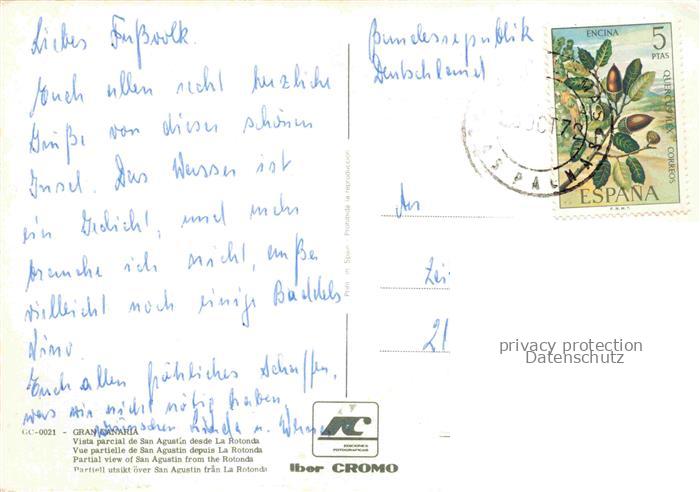 Liebes Fußvolk.
Euch allen recht herzliche
Grüße von dieser schönen
Insel. Das Wasser ist
ein Gedicht, und mehr
brauche ich nicht, außer
vielleicht noch einige Buddels
Vino.
Euch allen fröhliches Schaffen,
was wir nicht nötig haben,
wünschen Linda u.
Bundesrepublik
Deutschland
An
21
ENCINA
5
PTAS
QUERCUS ILEX
CORREOS
ESPAÑA
F.N.M.T.
OCT 72
LAS PALMAS
Print in Spain Prohibida la reproducción
privacy protection
Datenschutz
GC-0021 - GRAN CANARIA
Vista parcial de San Agustín desde La Rotonda
Vue partielle de San Agustin depuis La Rotonda
Partial view of San Agustin from the Rotonda
Partiell utsikt över San Agustin från La Rotonda
EDICIONES
FOTOGRAFICAS
Iber CROMO